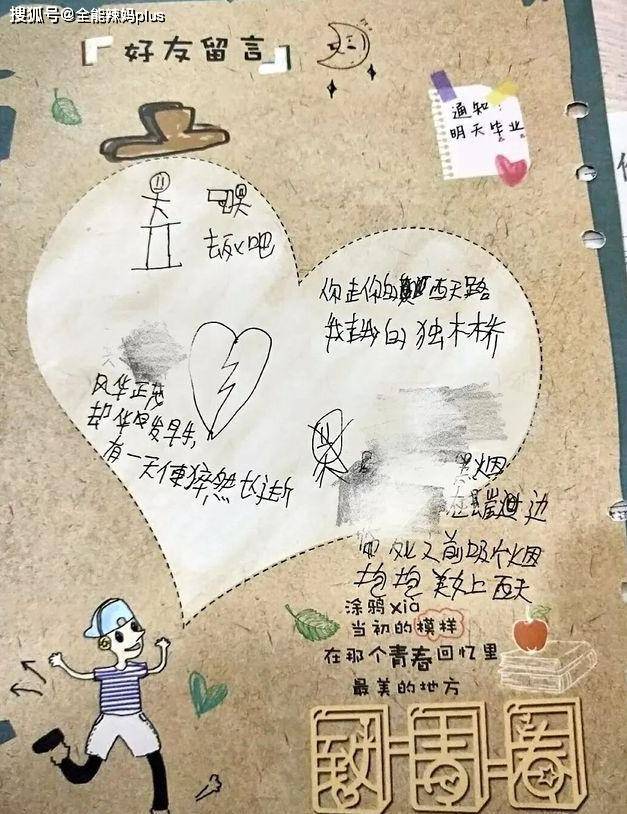 搜狐号@全能辣妈plus
好友留言
通知:
明天毕业
去吧
你走你的西天路
我走我的独木桥
风华正茂
却华发早生,
有一天便猝然长逝
烟
边
之前吸个烟
抱抱美女上西天
涂鸦xia
当初的模样
在那个青春回忆里
最美的地方
致青春